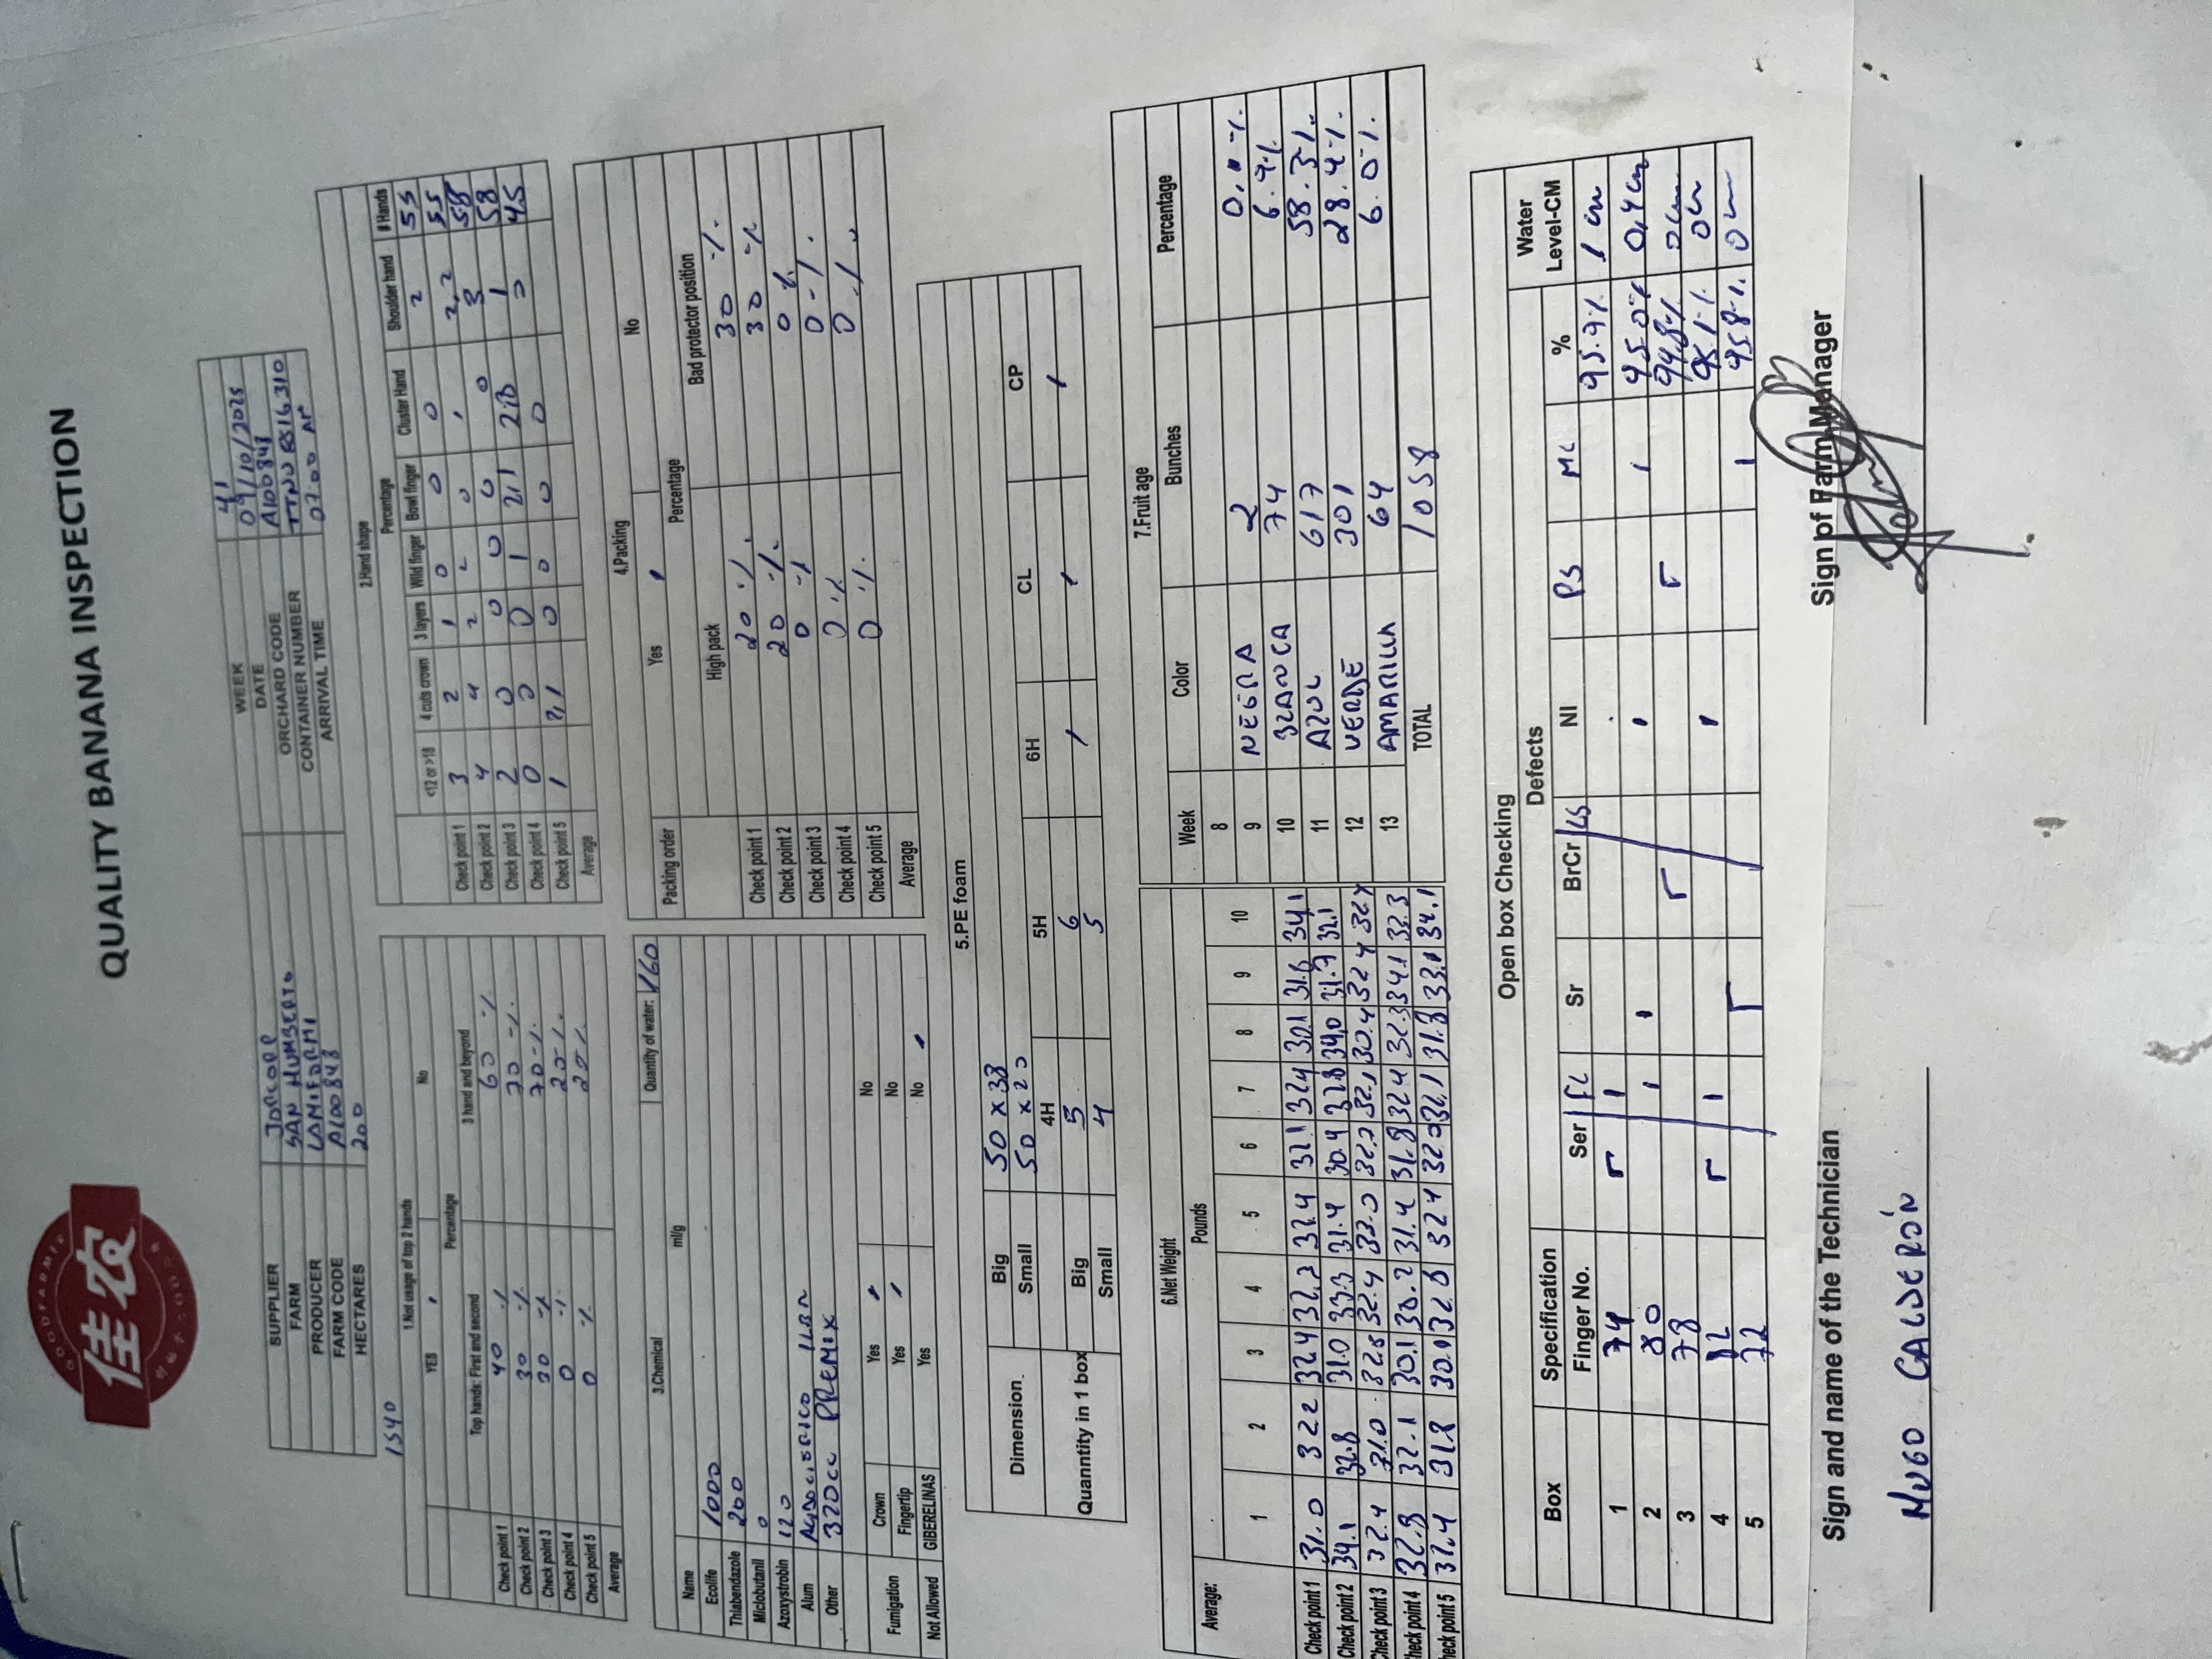 GOODFARMER
佳农
QUALITY BANANA INSPECTION
SUPPLIER JORCORP WEEK 41
FARM SAN HUMBERTO DATE 09/10/2025
PRODUCER LAMIFORMI ORCHARD CODE A100848
FARM CODE A100848 CONTAINER NUMBER
HECTARES 200 ARRIVAL TIME 07:00
1540
1.Not usage of top 2 hands
YES No
Percentage
Top hands: First and second 3 hand and beyond
Check point 1 40 % 60 %
Check point 2 30 % 70 %
Check point 3 30 % 70 %
Check point 4 0 %
Check point 5 0 %
Average
2.Hand shape
Percentage
<12 or >18 4 cuts crown 3 layers Wild finger Bowl finger Cluster Hand Shoulder hand # Hands
Check point 1 3 2 1 0 0 0 2 55
Check point 2 4 4 2 2 0 1 2,2 55
Check point 3 2 0 0 0 0 0 3 58
Check point 4 0 0 0 1 2,1 1 58
Check point 5 1 2,1 0 0 0 0 0 45
Average
3.Chemical Quantity of water: 160
Name ml/g
Ecolife 1000
Thiabendazole 200
Miclobutanil 0
Azoxystrobin 120
Alum
Other 320cc PREMIX
Fumigation Crown Yes No
Fingertip Yes No
Not Allowed GIBERELINAS Yes No
4.Packing
Packing order Yes No
Percentage
High pack Bad protector position
Check point 1 20 % 30 %
Check point 2 20 % 30 %
Check point 3 0 % 0 %
Check point 4 0 % 0 %
Check point 5 0 % 0 %
Average
5.PE foam
Dimension Big 50 x 38
Small 50 x 20
4H 5H 6H CL CP
Quanntity in 1 box Big 5 6 / / /
Small 4 5
6.Net Weight
Average: Pounds
1 2 3 4 5 6 7 8 9 10
Check point 1 31.0 32.2 32.4 32.4 32.1 32.4 30.1 31.6 34.1
Check point 2 34.1 32.8 31.0 33.3 31.4 30.4 32.8 34.0 31.7 32.1
Check point 3 32.4 31.0 32.8 32.4 33.0 32.1 30.4 32.4 32.4
Check point 4 32.8 32.1 30.1 30.2 31.4 31.8 32.4 32.3 34.1 33.3
Check point 5 32.4 31.8 32.4 32.1 31.8 34.1
7.Fruit age
Week Color Bunches Percentage
8
9 NEGRA 2
10 BLANCA 74 6.9%
11 AZUL 617 58.3%
12 VERDE 301 28.4%
13 AMARILLA 64 6.0%
TOTAL 1058
Open box Checking
Box Specification Defects Water Level-CM
Finger No. Ser FL Sr BrCr LS NI PS ML %
1 74 95.9% 1 cm
2 80 95.0% 0,4 cm
3 78 94.8% 0 cm
4 82 95.1% 0 cm
5 72 95.8% 0 cm
Sign and name of the Technician Sign of Farm Manager
HUGO CALDERÓN